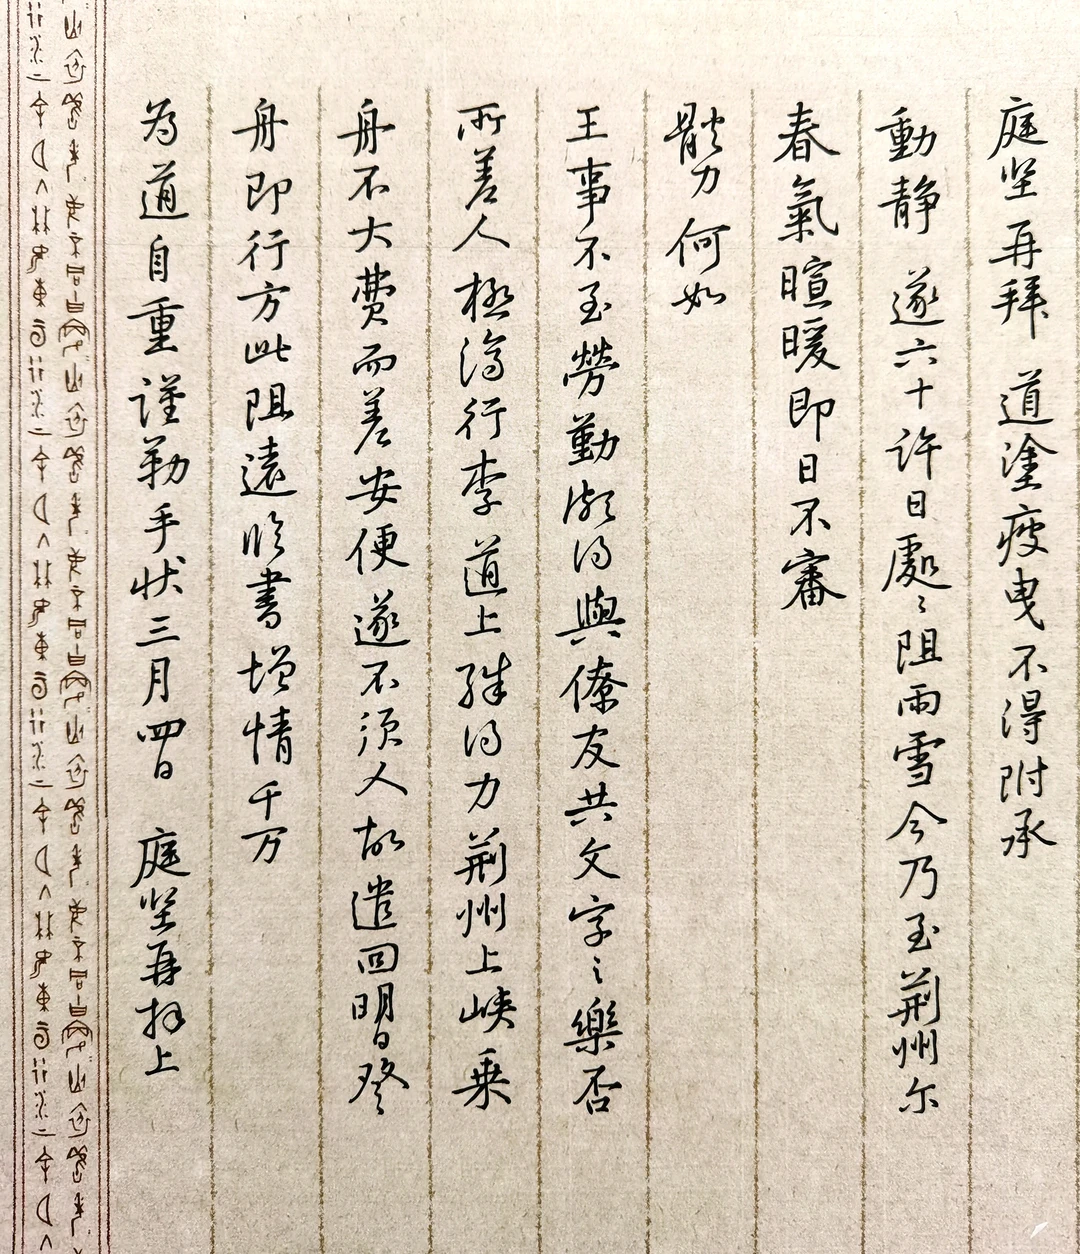 庭坚再拜 道塗疲曳不得附承
動静 遂六十許日處〻阻雨雪今乃至荆州尔
春氣暄暖即日不審
體力何如
王事不至勞勤頗得與僚友共文字之樂否
所差人極濟行李道上殊得力荆州上峽乗
舟不大費而差安便遂不須人故遣回明日登
舟即行方此阻遠臨書增情千万
為道自重謹勒手状三月四日 庭坚再拜上